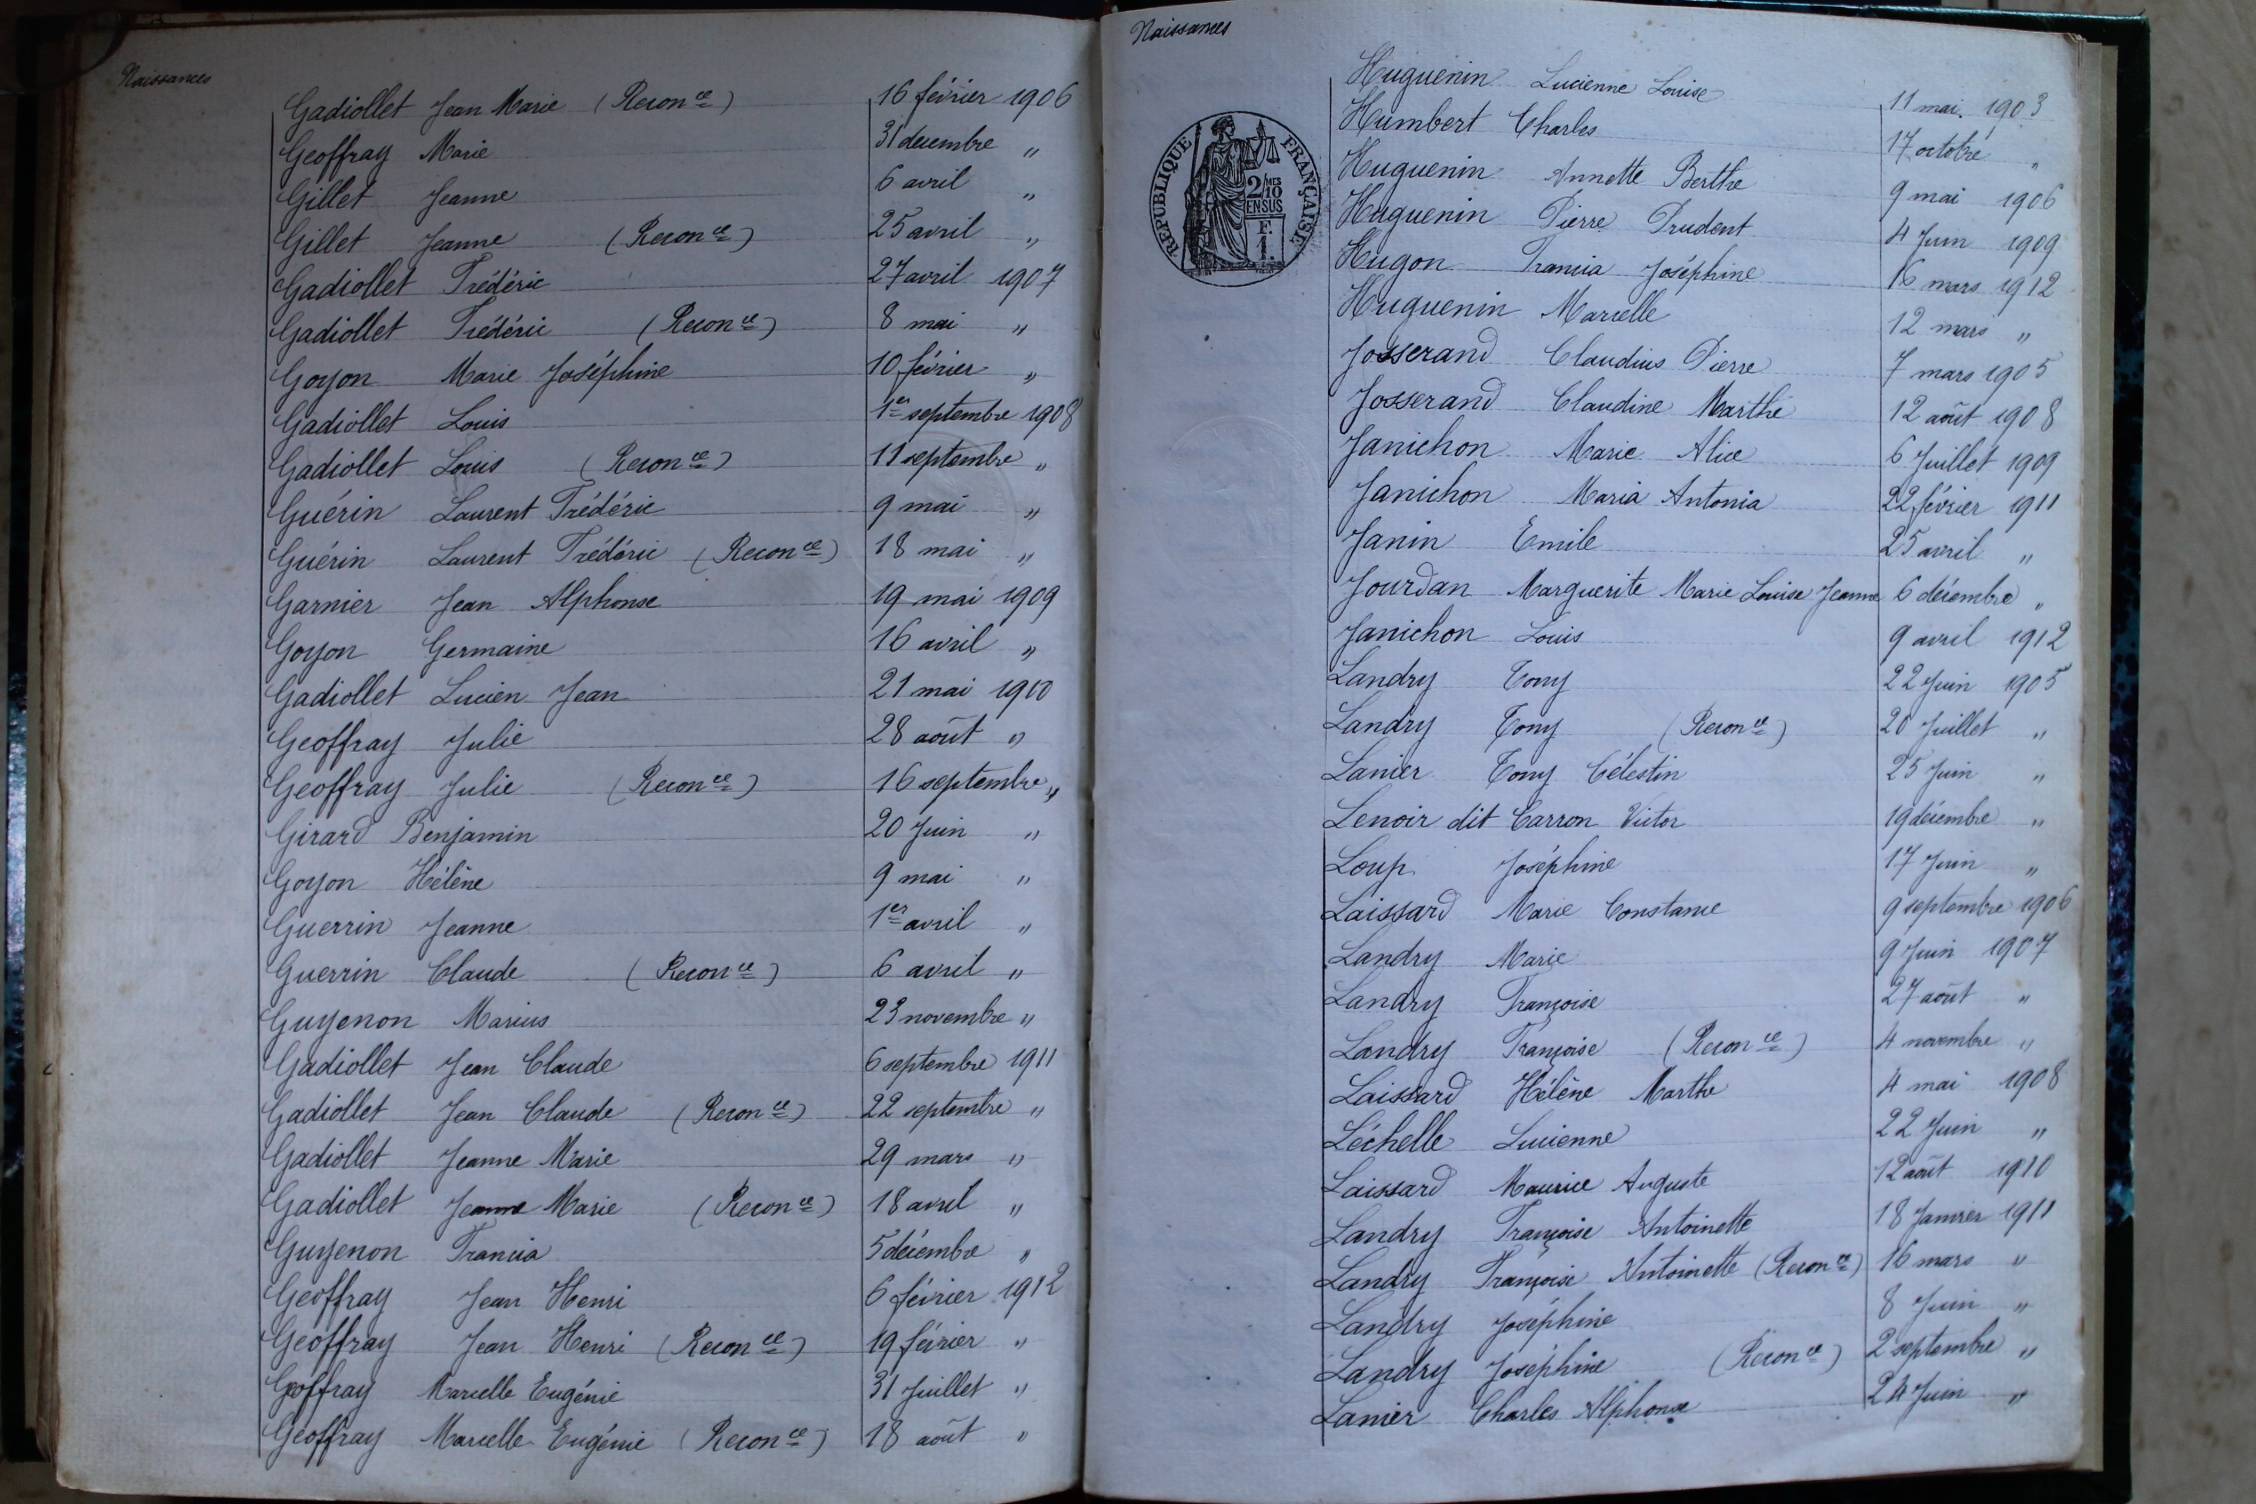 Naissances
Gadiollet Jean Marie (Reconce) 16 février 1906
Geoffray Marie 31 décembre "
Gillet Jeanne 6 avril "
Gillet Jeanne (Reconce) 25 avril "
Gadiollet Frédéric 27 avril 1907
Gadiollet Frédéric (Reconce) 8 mai "
Goyon Marie Joséphine 10 février "
Gadiollet Louis 1er septembre 1908
Gadiollet Louis (Reconce) 11 septembre "
Guérin Laurent Frédéric 9 mai "
Guérin Laurent Frédéric (Reconce) 18 mai "
Garnier Jean Alphonse 19 mai 1909
Goyon Germaine 16 avril "
Gadiollet Lucien Jean 21 mai 1910
Geoffray Julie 28 août "
Geoffray Julie (Reconce) 16 septembre "
Girard Benjamin 20 Juin "
Goyon Hélène 9 mai "
Guerrin Jeanne 1er avril "
Guerrin Claude (Reconce) 6 avril "
Guyenon Marius 23 novembre "
Gadiollet Jean Claude 6 septembre 1911
Gadiollet Jean Claude (Reconce) 22 septembre "
Gadiollet Jeanne Marie 29 mars "
Gadiollet Jeanne Marie (Reconce) 18 avril "
Guyenon Francia 5 décembre "
Geoffray Jean Henri 6 février 1912
Geoffray Jean Henri (Reconce) 19 février "
Geoffray Marcelle Eugénie 31 Juillet "
Geoffray Marcelle Eugénie (Reconce) 18 août "
Naissances
RÉPUBLIQUE FRANÇAISE
2/10MES
EN SUS
F.
1.
Huguenin Lucienne Louise 11 mai. 1903
Humbert Charles 17 octobre "
Huguenin Annette Berthe 9 mai 1906
Huguenin Pierre Prudent 4 Juin 1909
Hugon Francia Joséphine 16 mars 1912
Huguenin Marcelle 12 mars "
Josserand Claudius Pierre 7 mars 1905
Josserand Claudine Marthe 12 août 1908
Janichon Marie Alice 6 Juillet 1909
Janichon Maria Antonia 22 février 1911
Janin Emile 25 avril "
Jourdan Marguerite Marie Louise Jeanne 6 décembre "
Janichon Louis 9 avril 1912
Landry Tony 22 Juin 1905
Landry Tony (Reconce) 20 Juillet "
Lanier Tony Célestin 25 Juin "
Lenoir dit Carron Victor 19 décembre "
Loup Joséphine 17 Juin "
Laissard Marie Constance 9 septembre 1906
Landry Marie 9 Juin 1907
Landry Françoise 27 août "
Landry Françoise (Reconce) 4 novembre "
Laissard Hélène Marthe 4 mai 1908
Léchelle Lucienne 22 Juin "
Laissard Maurice Auguste 12 août 1910
Landry Françoise Antoinette 18 Janvier 1911
Landry Françoise Antoinette (Reconce) 16 mars "
Landry Joséphine 8 Juin "
Landry Joséphine (Reconce) 2 septembre "
Lanier Charles Alphonse 24 Juin "